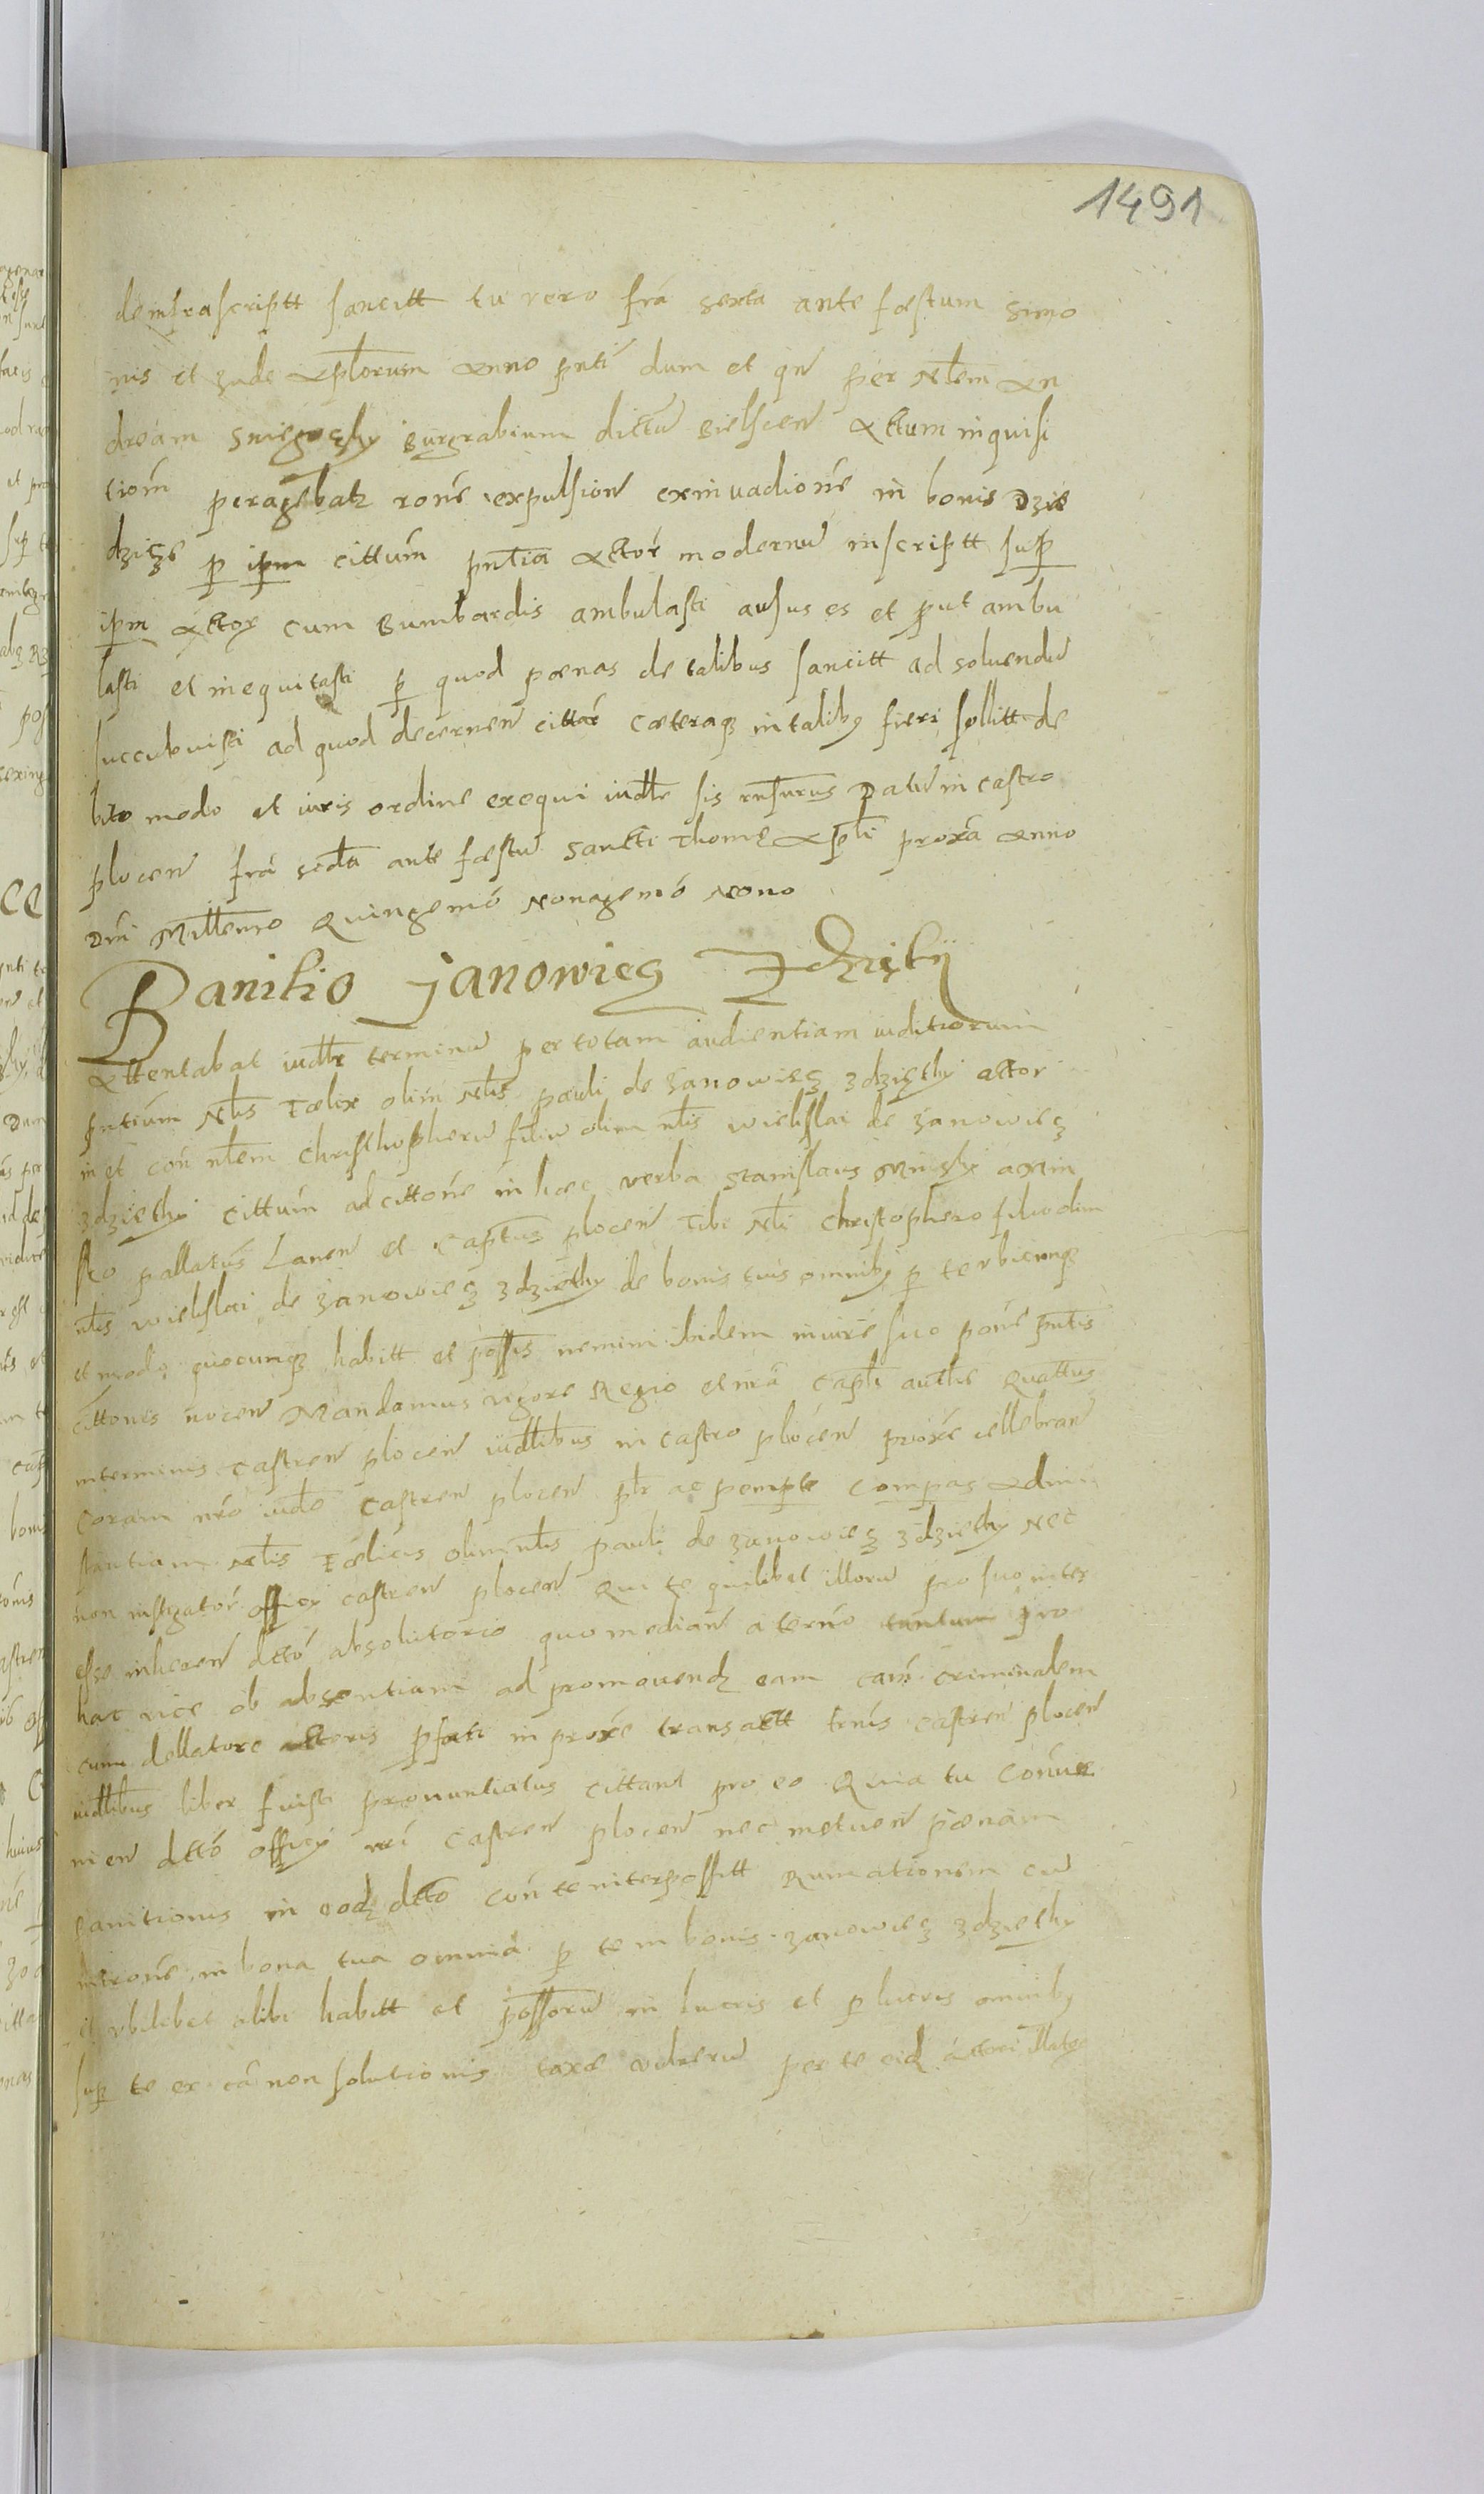 1491
deinfrascriptt sancitt tu vero fra sexta ante fæstum Simo
nis et Jude Aplorum Anno pnti dum et qn per Nlem An
dream Sniegoczky Burgrabium dictu Bielscen Actum inquisi
tiom peragebatz rone expulsion exinuadione in bonis Dzie
dzicze p ipm cittum pntia Actor modernu inscriptt sup
ipm Actor cum Bumbardis ambulasti ausus es et put ambu
lasti et inequitasti p quod pœnas de talibus sancitt ad soluendu
succubuisti ad quod decernen cittar cæteraq in taliby fieri sollitt de
bito modo et iuris ordine exequi iudlr sis rnsurus Datu in castro
plocen fra scda ante fæstu Sancti Thomę Apli proxa Anno
Dni Millemo Quingemo Nonagemo Nono
Banitio Janowięs Zdzięty
Attentabat iudlr terminu per totam audientiam iuditiorum
pntium Nlis Fælix olim Nlis pauli de Janowięz Zdzięthy actor
in et con nlem Christhopheru filiu olim nlis wielislai de Janowięz
Zdziethy cittum ad cittone in hæc verba Stanislaus Minsky
pallatus Lanen et Captus plocen Tibi Nli Christophero filio olim
nlis wielislai de Janowięz Zdziethy de bonis tuis omniby p te vbicunq
et modo quocunq habitt et posses nemini ibidem in iure suo pone pntis
cittonis nocen Mandamus vigore Regio et nra capli authe Quattus
interminis castren plocen iudlibus in castro plocen proxe cellebran
Coram nro iudo castren plocen plr ac pempte compas Ad in
stantiam Nlis Fælicis olim nlis pauli de Janowięz Zdziethy Nec
non instigator officy castren plocen Qui te quilibet illoru pro suo inter
esse inheren dctto absolutorio quo median a termo tantum pro
hac vice ob absentiam ad promouendz eam cam criminalem
cum dellatore actoris pfati in proxe transactt trnis castren plocen
iudlibus liber fuisti pronuntiatus cittant pro eo Quia tu conve
nien dctto officy nri castren plocen nec metuen pœnam
banitionis in eodz dctto con te interpossitt Rumationem cu
introne in bona tua omnia p te in bonis Janowięz Zdziethy
et vbilibet alibi habitt et possessoru in lucris et p lucris omniby
sup te ex ca non solutionis taxæ vulneru per te eidz actori illato